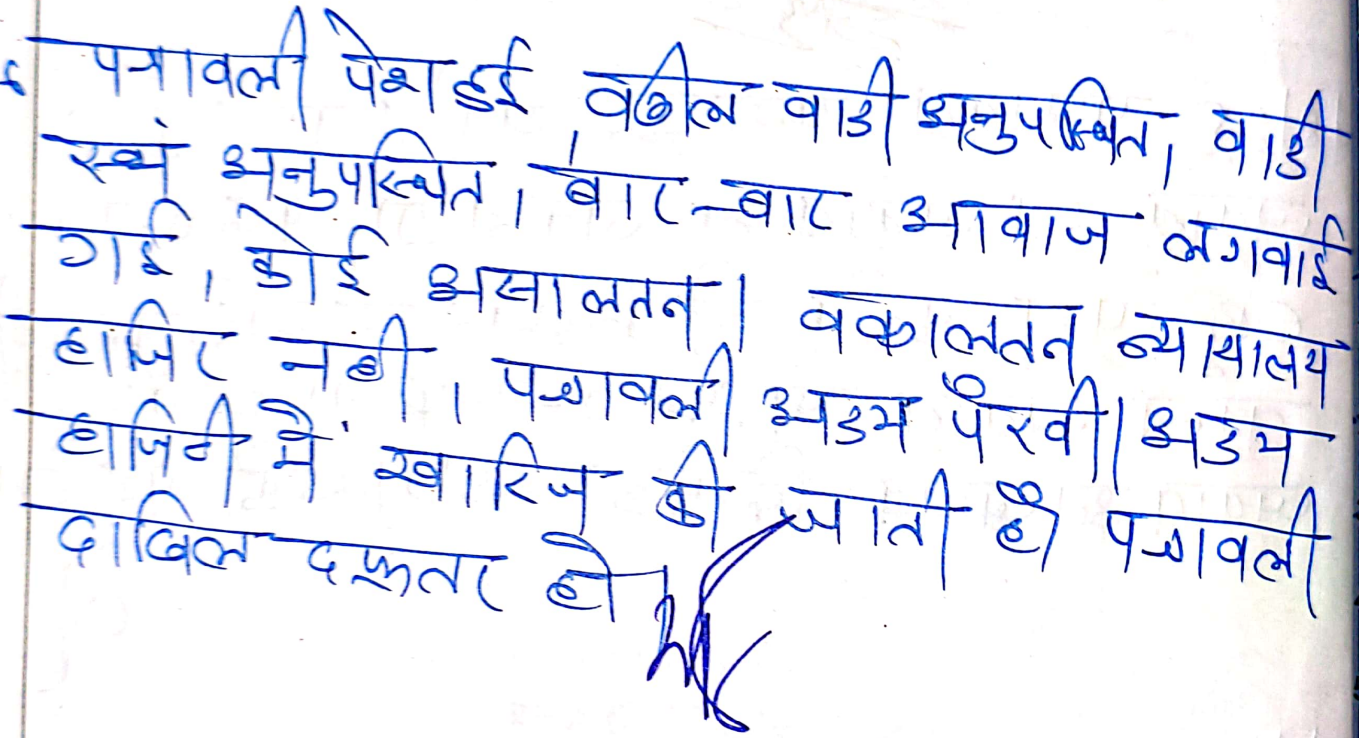 पत्रावली पेश हुई वकील वादी अनुपस्थित, वादी
स्वयं अनुपस्थित, बार-बार आवाज लगवाई
गई, कोई असालतन। वकालतन न्यायालय
हाजिर नही, पत्रावली अदम पैरवी। अदम
हाजिरी में खारिज की जाती है। पत्रावली
दाखिल दफ्तर हो